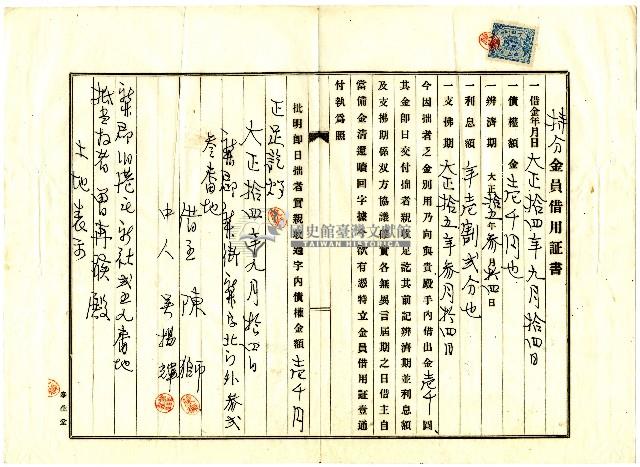 持分金員借用証書
一借金年月日大正拾四年九月拾四日
一債權額金壱千円也
一辨濟期大正拾五年参月拾四日
一利息額年壱割弐分也
一支拂期大正拾五年参月拾四日
今因拙者乏金別用乃向與貴殿手內借出金壱千圓
其金即日交付拙者親收足訖其前記辨濟期並利息額
及支拂期係双方協議確實各無異言屆期之日借主自
當備金清還贖回字據
欲有憑特立金員借用証壹通
付執爲照
批明即日拙者實親收過字內債權金額壱千円
正足訖炤
大正拾四年九月拾四日
新竹郡新竹街新竹北門外参弐
参番地
借主 陳
中人 吳揚
新竹郡旧港庄新社弐五九番地
曾再殿
土地表示
國史館臺灣文獻館
TAIWAN HISTORICA